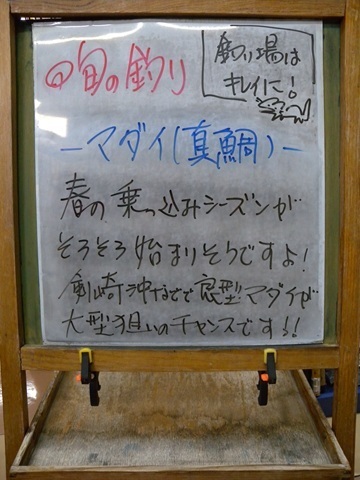 旬の釣り
釣り場は
キレイに!
－マダイ(真鯛)－
春の乗っ込みシーズンが
そろそろ始まりそうですよ!
剣崎沖などで良型マダイが
大型狙いのチャンスです!!